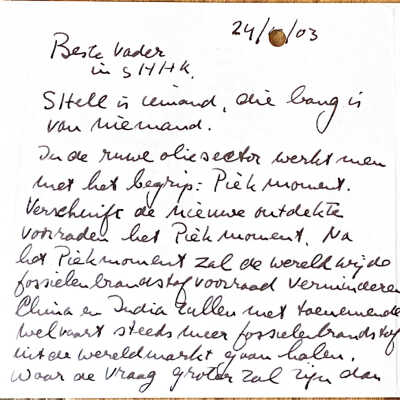 24/ /03
Beste Vader
in SHHK.
SHell is iemand, die bang is
van niemand.
In de ruwe oliesector werkt men
met het begrip: Piek moment.
Verschuift de nieuwe ontdekte
voorraden het Piekmoment. Na
het Piekmoment zal de wereldwijde
fossielenbrandstofvoorraad verminderen
China en India zullen met toenemende
welvaart steeds meer fossielenbrandstof
uit de wereldmarkt gaan halen.
Waar de vraag groter zal zijn dan